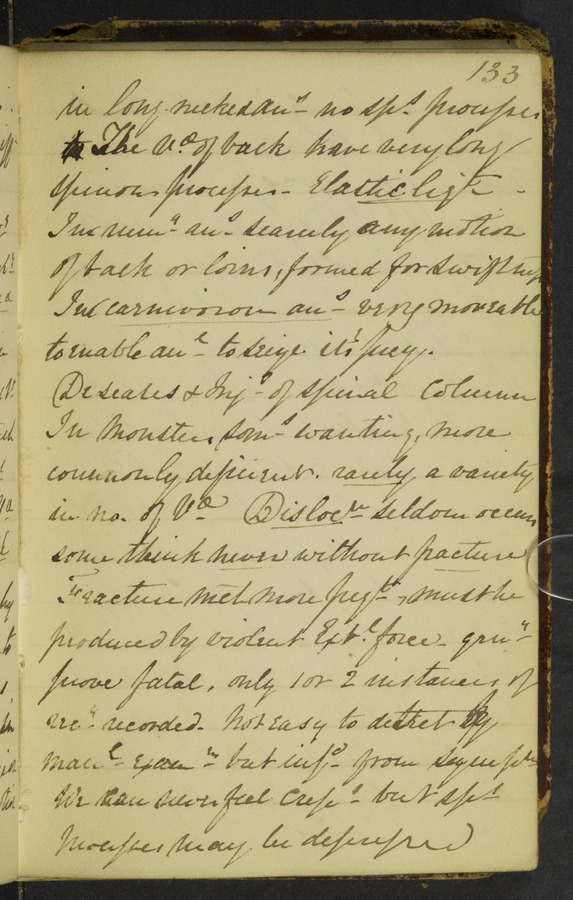 133
in long necked an.s - no sp.s processes
The V.ae of back have very long
spinous processes - Elastic lig.t -
In rum.t an.s scarcely any motion
of back or loins, formed for swiftness
In carnivorous an.s - very moveable
to enable an.l - to seize it's prey.
Diseases & Inj.s - of spinal Column
In Monsters, som.s wanting, more
commonly deficient. rarely a variety
in no. of V.ae Disloc.n seldom occurs
some think never without fracture
Fracture met more freq.ly, must be
produced by violent Ext.l force - gen.y
prove fatal, only 1 or 2 instances of
rec.y recorded. Not easy to detect by
man.l - exam.n - but inf.d from sympt.s
We can never feel crep.s - but sp.s
processes may be depressed